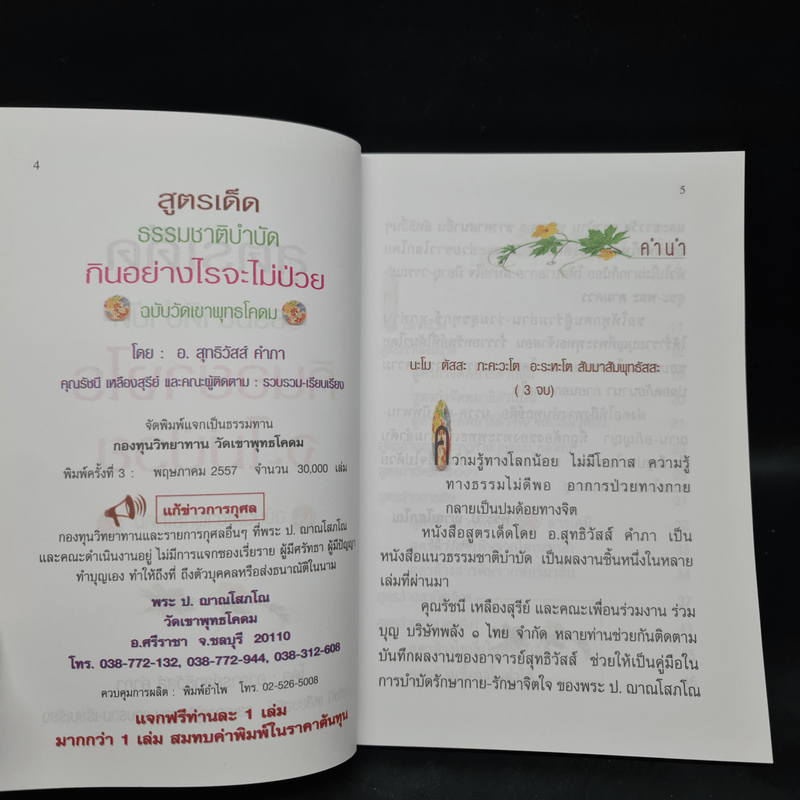 4
สูตรเด็ด
ธรรมชาติบำบัด
กินอย่างไรจะไม่ป่วย
ฉบับวัดเขาพุทธโคดม
โดย : อ. สุทธิวัสส์ คำภา
คุณรัชนี เหลืองสุรีย์ และคณะผู้ติดตาม : รวบรวม-เรียบเรียง
จัดพิมพ์แจกเป็นธรรมทาน
กองทุนวิทยาทาน วัดเขาพุทธโคดม
พิมพ์ครั้งที่ 3 : พฤษภาคม 2557 จำนวน 30,000 เล่ม
แก้ข่าวการกุศล
กองทุนวิทยาทานและรายการกุศลอื่นๆ ที่พระ ป. ญาณโสภโณ
และคณะดำเนินงานอยู่ ไม่มีการแจกซองเรี่ยราย ผู้มีศรัทธา ผู้มีปัญญา
ทำบุญเอง ทำให้ถึงที่ ถึงตัวบุคคลหรือส่งธนาณัติในนาม
พระ ป. ญาณโสภโณ
วัดเขาพุทธโคดม
อ.ศรีราชา จ.ชลบุรี 20110
โทร. 038-772-132, 038-772-944, 038-312-608
ควบคุมการผลิต : พิมพ์อำไพ โทร. 02-526-5008
แจกฟรีท่านละ 1 เล่ม
มากกว่า 1 เล่ม สมทบค่าพิมพ์ในราคาต้นทุน
5
คำนำ
นะโม ตัสสะ ภะคะวะโต อะระหะโต สัมมาสัมพุทธัสสะ
( 3 จบ)
ความรู้ทางโลกน้อย ไม่มีโอกาส ความรู้
ทางธรรมไม่ดีพอ อาการป่วยทางกาย
กลายเป็นปมด้อยทางจิต
หนังสือสูตรเด็ดโดย อ.สุทธิวัสส์ คำภา เป็น
หนังสือแนวธรรมชาติบำบัด เป็นผลงานชิ้นหนึ่งในหลาย
เล่มที่ผ่านมา
คุณรัชนี เหลืองสุรีย์ และคณะเพื่อนร่วมงาน ร่วม
บุญ บริษัทพลัง ๑ ไทย จำกัด หลายท่านช่วยกันติดตาม
บันทึกผลงานของอาจารย์สุทธิวัสส์ ช่วยให้เป็นคู่มือใน
การบำบัดรักษากาย-รักษาจิตใจ ของพระ ป. ญาณโสภโณ